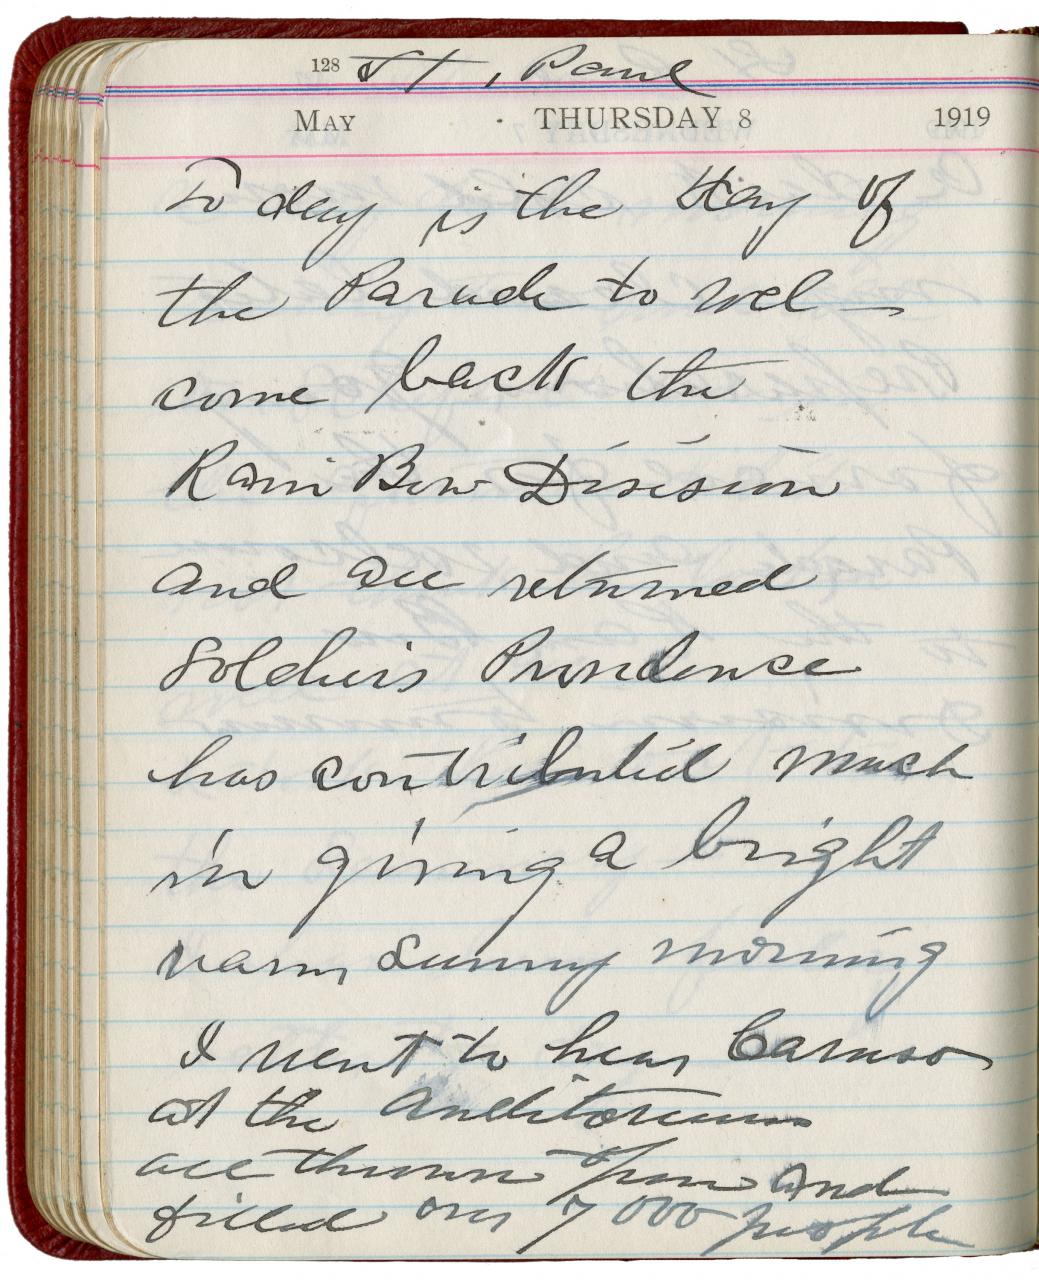 128 St, Paul
May THURSDAY 8 1919
To day is the Day of
the Parade to wel-
come back the
Rain Bow Division
and all returned
Soldiers Providence
has contributed much
in giving a bright
warm Sunny morning
I went to hear Caruso
at the Auditorium
all thrown open and
filled over 7000 people